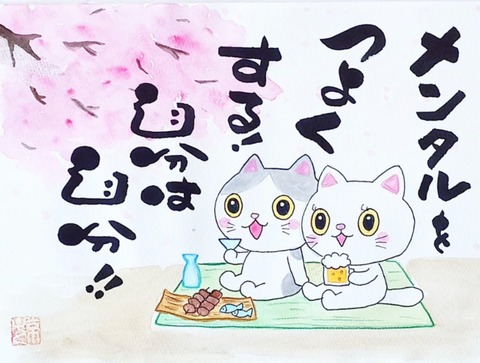 メンタルを
つよく
する!
自分は
自分!!